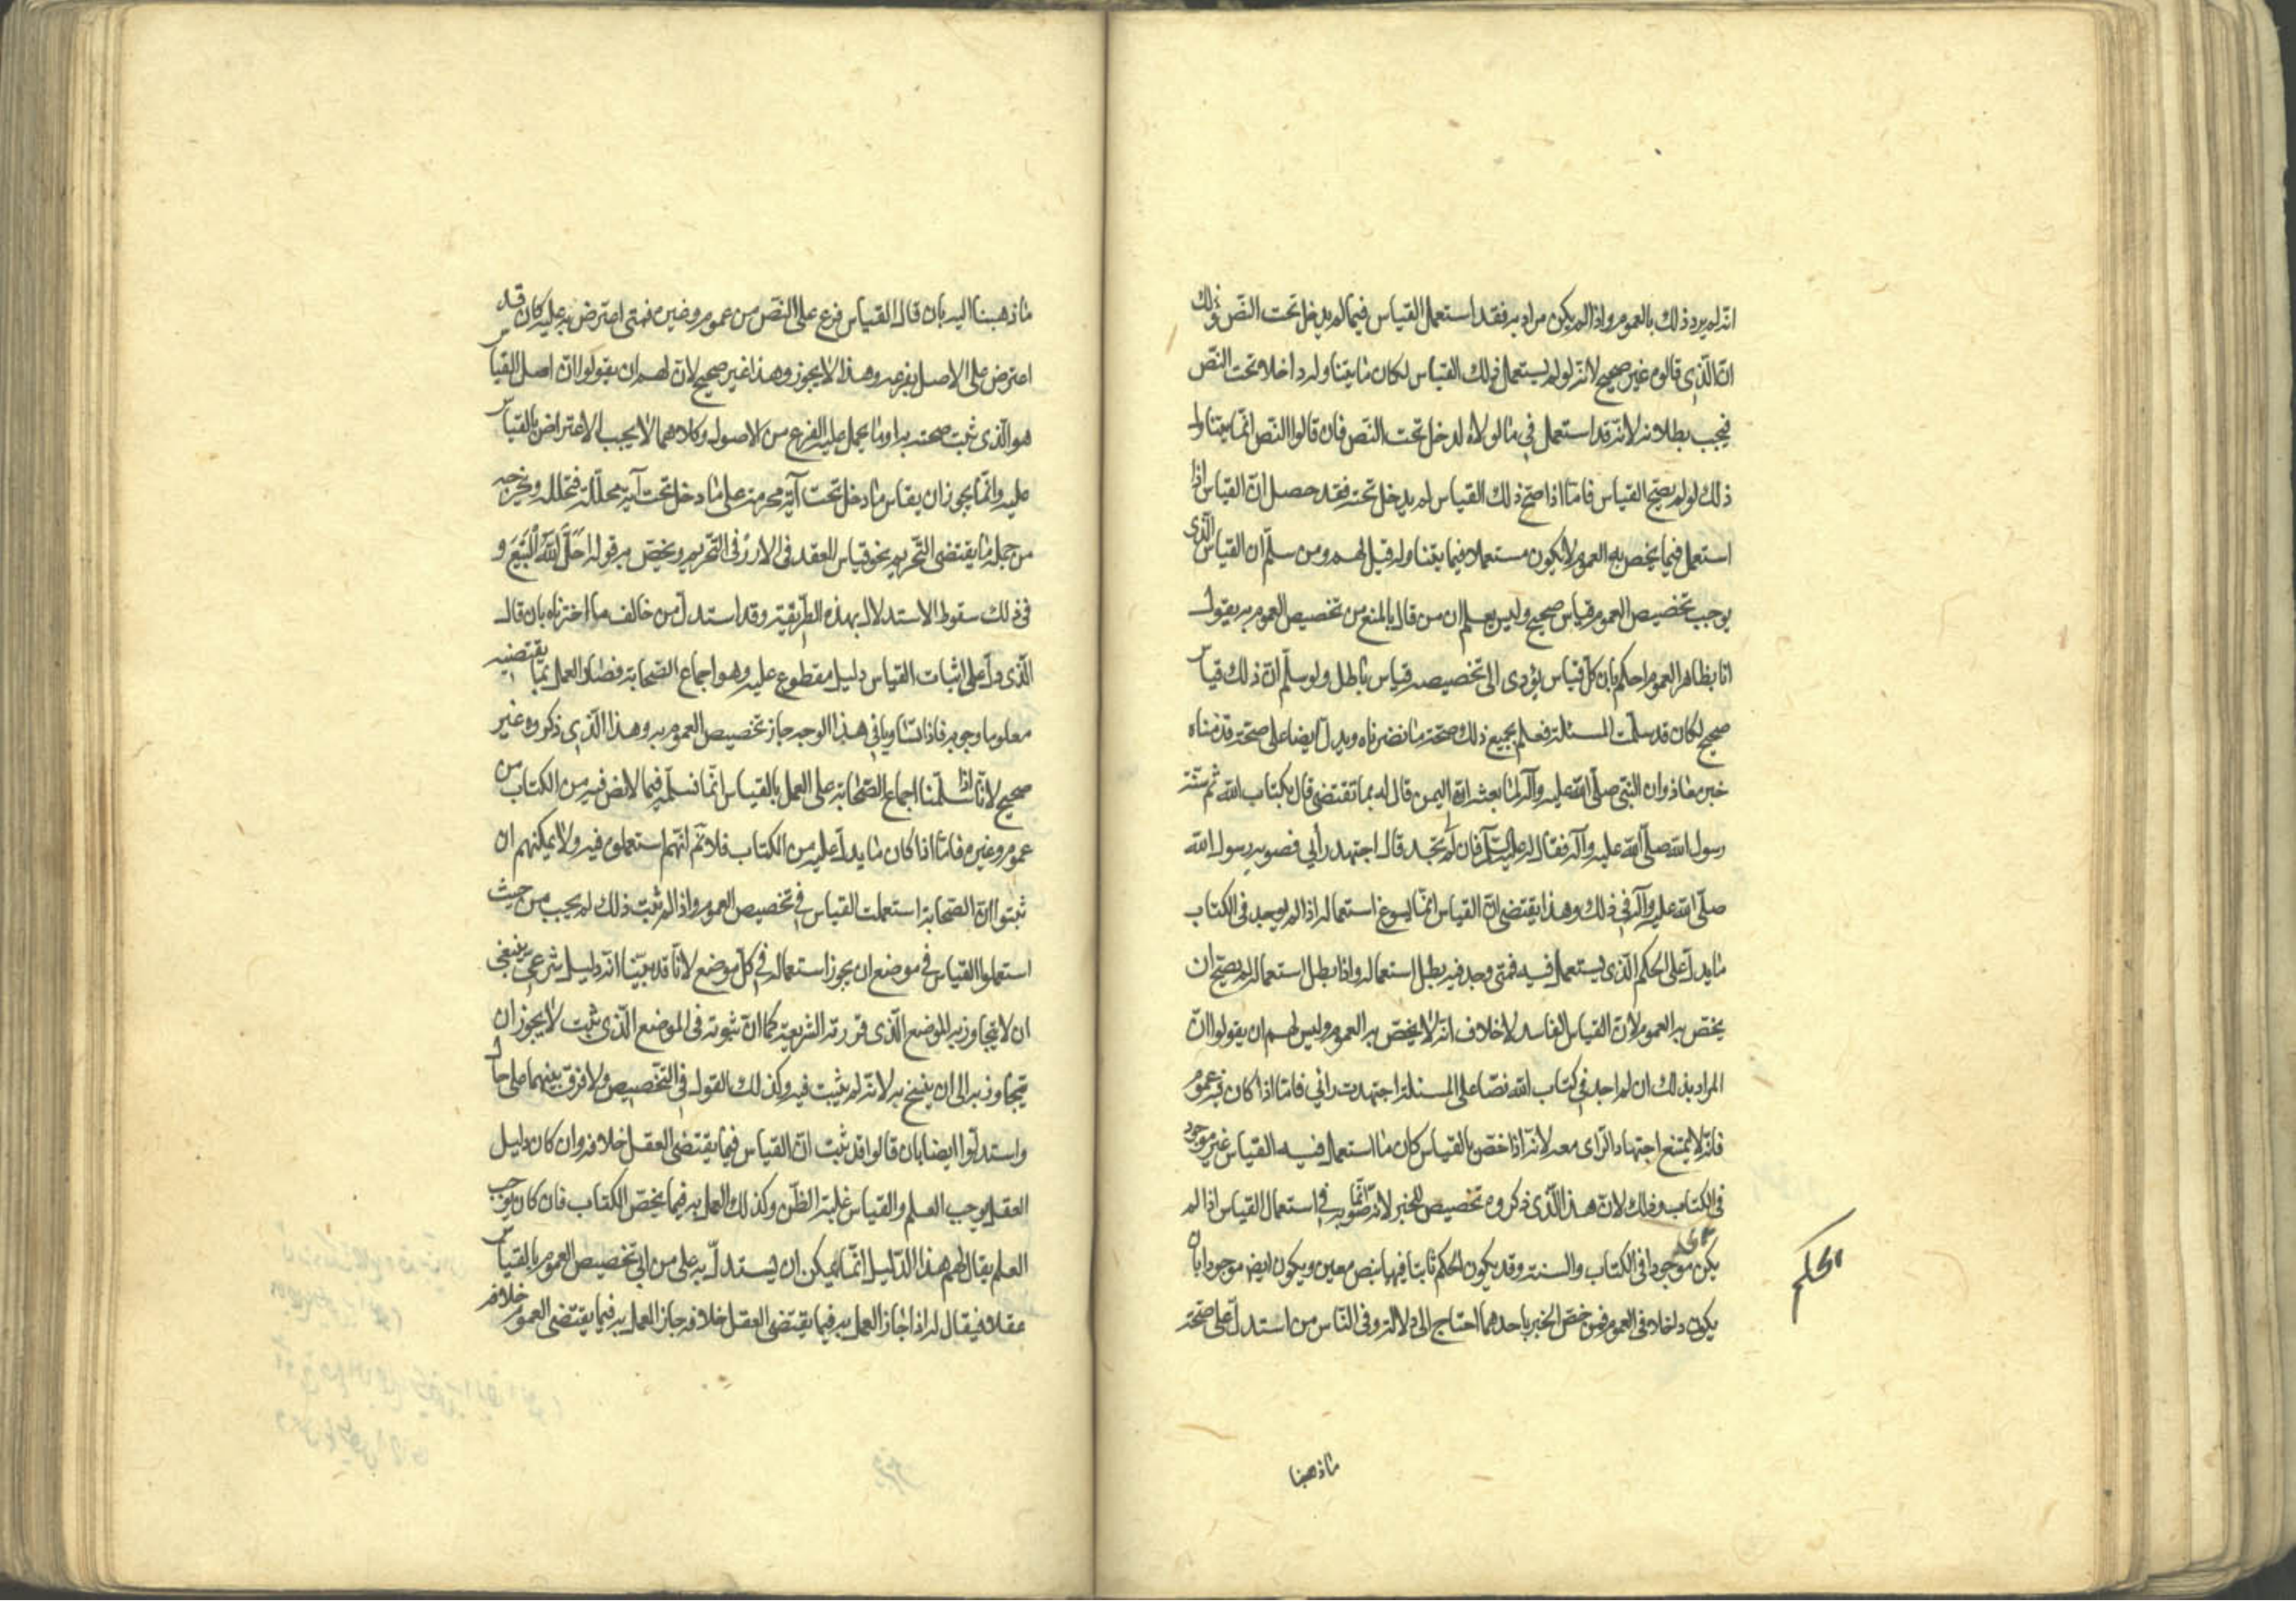 انه لم يرد ذلك بالعموم واذا لم يكن مراد به فقد استعمل القياس فيما لم يدخل تحت النص وذلك
ان الذي قالوه غير صحيح لانه لو لم يستعمل ذلك القياس لكان ما يتناوله داخلا تحت النص
فيجب بطلانه لانه قد استعمل في ما لولاه لدخل تحت النص فان قالوا النص انما يتناول
ذلك لو لم يصح القياس فاما اذا صح ذلك القياس لم يدخل تحته فقد حصل ان القياس اذا
استعمل فيما يخص به العموم لا يكون مستعملا فيما يتناوله قيل لهم ومن سلم ان القياس الذي
يوجب تخصيص العموم قياس صحيح وليس يعلم ان من قال بالمنع من تخصيص العموم به يقول
انا بظاهر العموم احكم بان كل قياس يؤدى الى تخصيصه قياس باطل ولو سلم ان ذلك قياس
صحيح لكان قد سلمت المسئلة فعلم بجميع ذلك صحة ما نضرناه ويدل ايضا على صحة ما قدمناه
خبر معاذ وان النبي صلى الله عليه وآله لما بعثه الى اليمن قال له بما تقتضى قال بكتاب الله ثم سنة
رسول الله صلى الله عليه وآله فقال له عليه السلم فان لم تجد قال اجتهد رأيي فصوبه رسول الله
صلى الله عليه وآله في ذلك وهذا يقتضى ان القياس انما يسوغ استعماله اذا لم يوجد فى الكتاب
ما يدل على الحكم الذى يستعمل فيه فمتى وجد فيه بطل استعماله واذا بطل استعماله لم يصح ان
يخص به العموم لان القياس الفاسد لا خلاف انه لا يخص به العموم وليس لهم ان يقولوا ان
المراد بذلك ان لم اجد فى كتاب الله نصا على المسئلة اجتهدت رائي فاما اذا كان فيه عموم
فانه لا يمتنع اجتهاد الراى معه لانه اذا خص بالقياس كان ما استعمل فيه القياس غير موجود
فى الكتاب وذلك لان هذا الذى ذكروه تخصيص للخبر لانه انما صوبه في استعمال القياس اذا لم
يكن موجودا فى الكتاب والسنة وقد يكون الحكم ثابتا فيها بنص معين ويكون ايضا موجودا بان
يكون داخلا فى العموم فمن خص الخبر باحدهما احتاج الى دلالة وفى الناس من استدل على صحة
الحكم
ما ذهبنا
ما ذهبنا اليه بان قال القياس فرع على النص من عموم وغيره فمتى اعترض به عليه كان قد
اعترض على الاصل بفرعه وهذا لا يجوز وهذا غير صحيح لان لهم ان يقولوا ان اصل القياس
هو الذى ثبت صحته به او ما يحمل عليه الفرع من الاصول وكلاهما لا يجب الاعتراض بالقياس
عليه وانما يجوز ان يقاس ما دخل تحت آية محرمة على ما دخل تحت آية محللة فتحلله وتخرجه
من جملة ما يقتضى التحريم نحو قياس العقد فى الارز فى التحريم ويخص به قوله احل الله البيع و
فى ذلك سقوط الاستدلال بهذه الطريقة وقد استدل من خالف ما اخترناه بان قال
الذى دل على اثبات القياس دليل مقطوع عليه وهو اجماع الصحابة فصار العمل بما يقتضيه
معلوما وجوبه فاذا تساويا في هذا الوجه جاز تخصيص العموم به وهذا الذي ذكروه غير
صحيح لانا اذا سلمنا اجماع الصحابة على العمل بالقياس انما نسلمه فيما لا نص فيه من الكتاب من
عموم وغيره فاما اذا كان ما يدل عليه من الكتاب فلا نم انهم استعملوه فيه ولا يمكنهم ان
ثبتوا ان الصحابة استعملت القياس في تخصيص العموم واذا لم يثبت ذلك لم يجب من حيث
استعملوا القياس في موضع ان يجوز استعماله في كل موضع لانا قد بينا انه دليل شرعي ينبغى
ان لا يتجاوز به الموضع الذى قررته الشريعة كما ان ثبوته فى الموضع الذى ثبت لا يجوز ان
يتجاوز به الى ان ينسخ به لانه لم يثبت فيه وكذلك القول في التخصيص ولا فرق بينهما على حال
واستدلوا ايضا بان قالوا قد ثبت ان القياس فيما يقتضى العقل خلافه وان كان دليل
العقل يوجب العلم والقياس غلبة الظن وكذلك العمل به فيما يخص الكتاب فان كان يوجب
العلم يقال لهم هذا الدليل انما يمكن ان يستدل به على من ابى تخصيص العموم بالقياس
عقلا فيقال له اذا جاز العمل به فيما يقتضى العقل خلافه جاز العمل به فيما يقتضى العموم خلافه